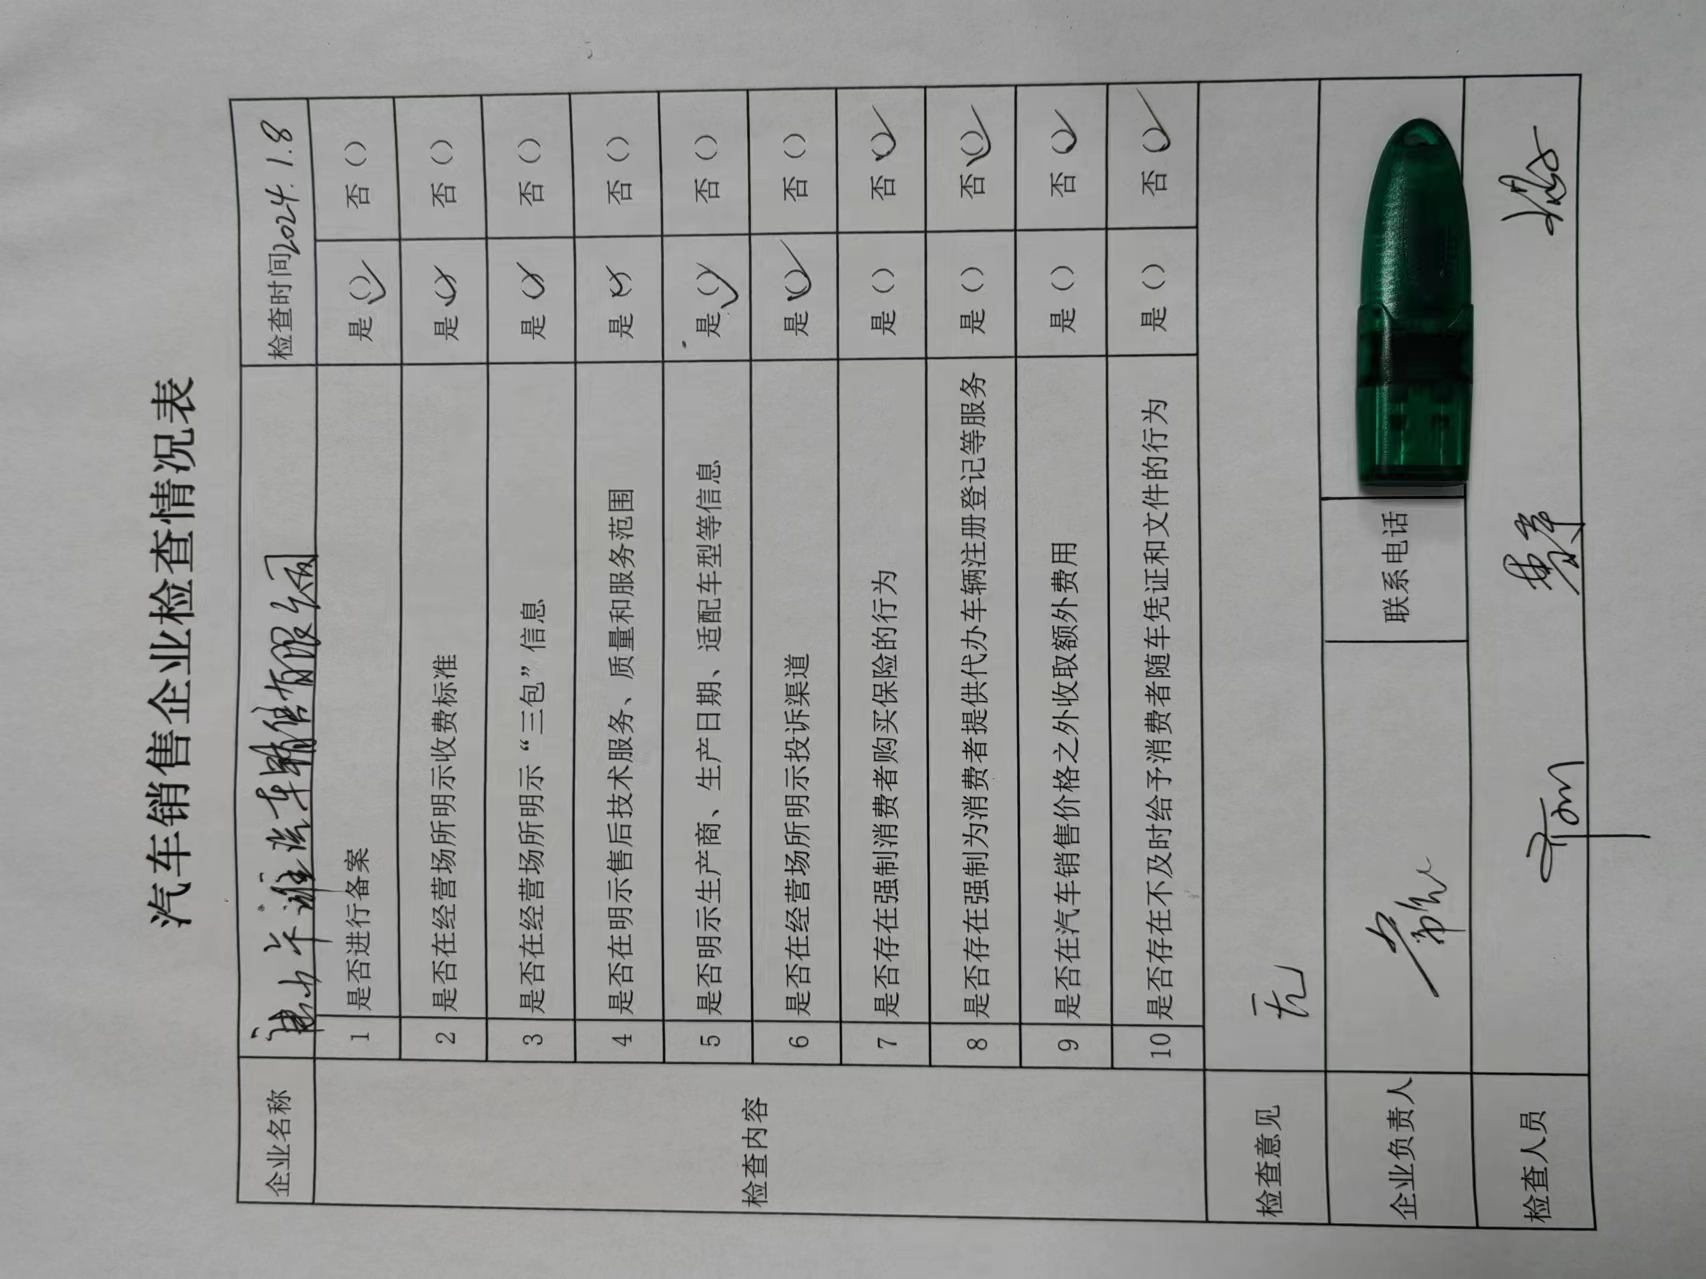 汽车销售企业检查情况表
企业名称 唐山 汽车销售有限公司 检查时间2024.1.8
检查内容
1 是否进行备案 是(√) 否()
2 是否在经营场所明示收费标准 是(√) 否()
3 是否在经营场所明示“三包”信息 是(√) 否()
4 是否在明示售后技术服务、质量和服务范围 是(√) 否()
5 是否明示生产商、生产日期、适配车型等信息 是(√) 否()
6 是否在经营场所明示投诉渠道 是(√) 否()
7 是否存在强制消费者购买保险的行为 是() 否(√)
8 是否存在强制为消费者提供代办车辆注册登记等服务 是() 否(√)
9 是否在汽车销售价格之外收取额外费用 是() 否(√)
10 是否存在不及时给予消费者随车凭证和文件的行为 是() 否(√)
检查意见 无
企业负责人 联系电话
检查人员